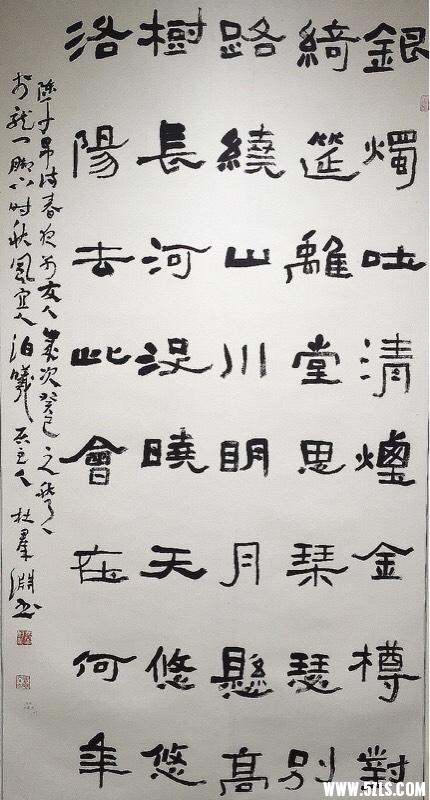 銀燭吐清煙金樽對
綺筵離堂思琴瑟別
路繞山川明月懸高
樹長河没曉天悠悠
洛陽去此會在何年
陳子昂詩春夜別友人歲次癸巳之
於龍一时秋風宜人泊主人杜羣淵書
WWW.5ZLS.COM